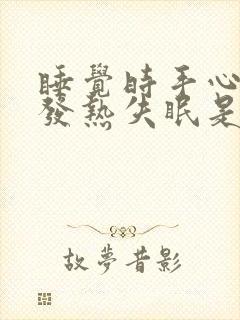 睡覺時手心
發熱失眠是
故夢昔影